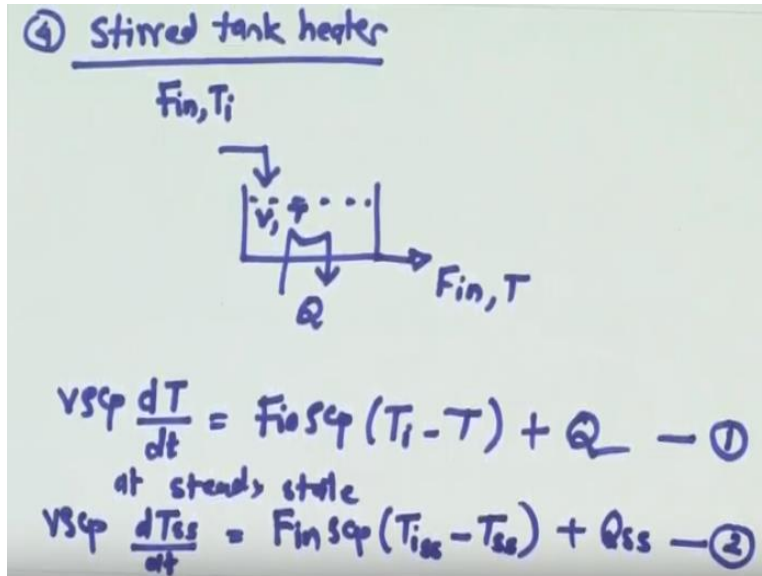 ④ Stirred tank heater
Fin, Ti
V, T
Fin, T
Q
VρCp dT/dt = Fin ρCp (Ti - T) + Q — ①
at steady state
VρCp dTss/dt = Fin ρCp (Tiss - Tss) + Qss — ②